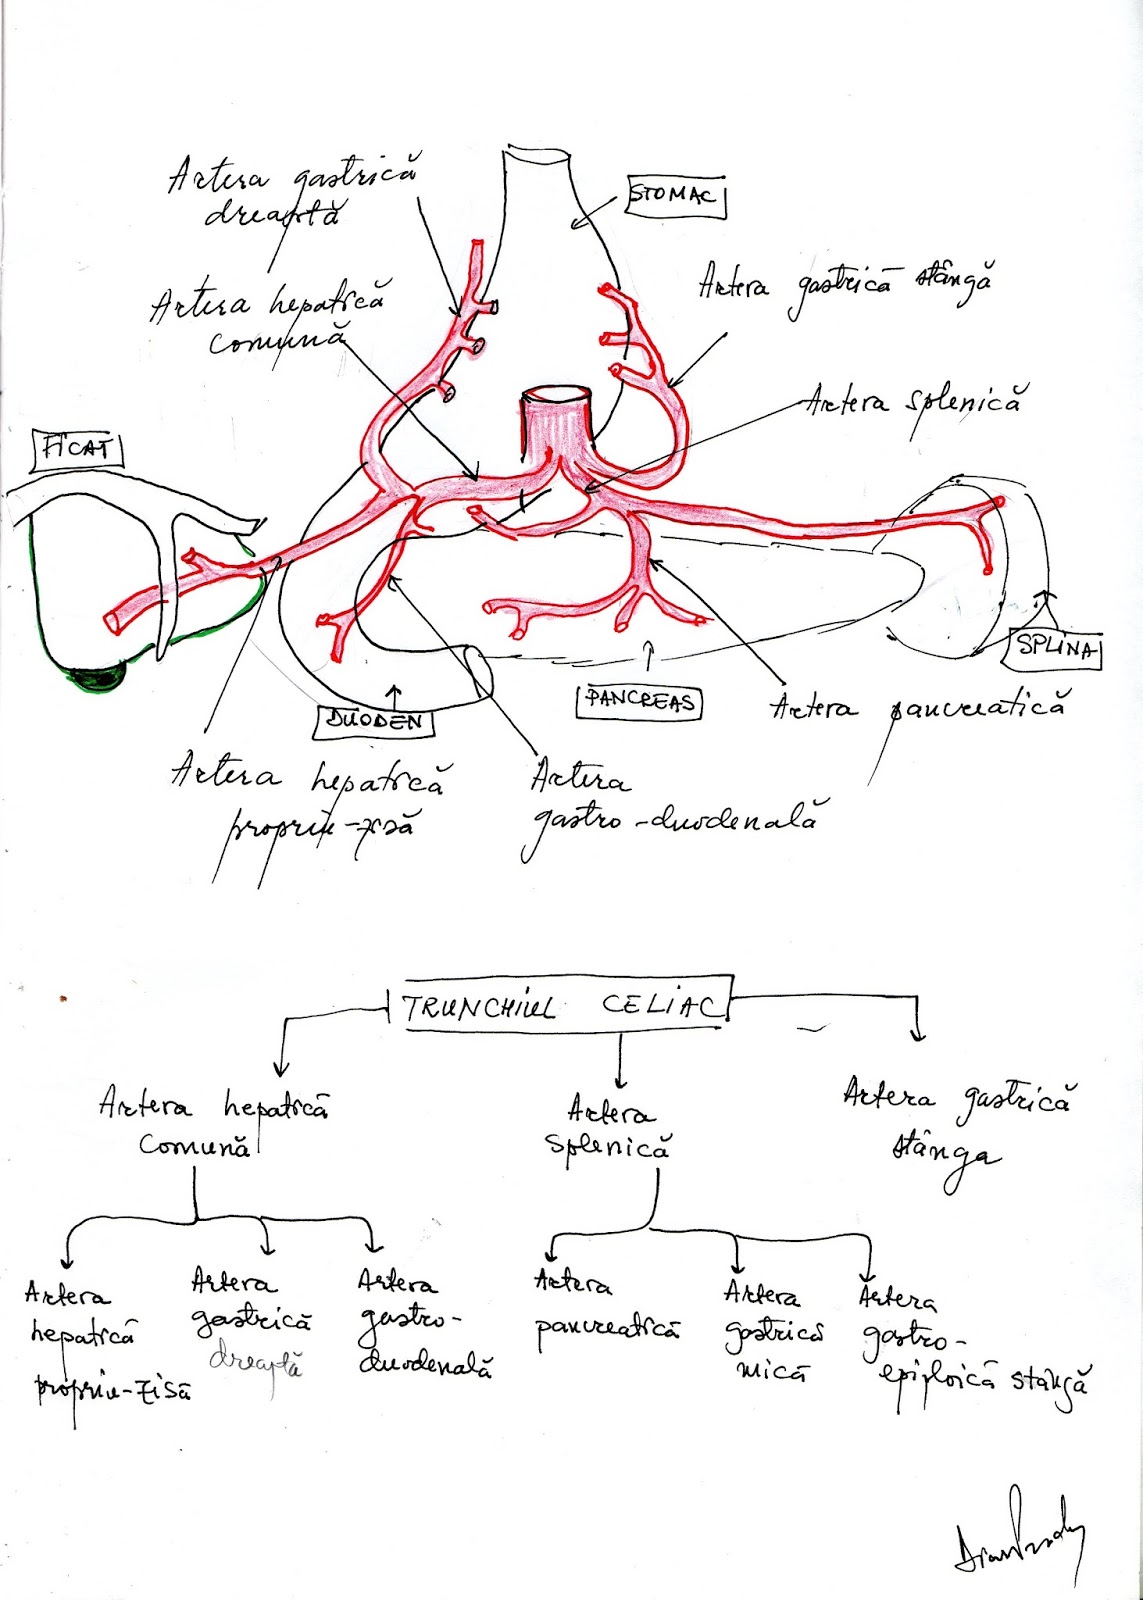 Artera gastrică
dreaptă
STOMAC
Artera hepatică
comună
Artera gastrică stângă
Artera splenică
FICAT
SPLINA
PANCREAS
DUODEN
Artera pancreatică
Artera hepatică
propriu-zisă
Artera
gastro-duodenală
TRUNCHIUL CELIAC
Artera hepatică
comună
Artera
splenică
Artera gastrică
stânga
Artera
hepatică
propriu-zisă
Artera
gastrică
dreaptă
Artera
gastro-
duodenală
Artera
pancreatică
Artera
gastrică
mică
Artera
gastro-
epiploică stângă